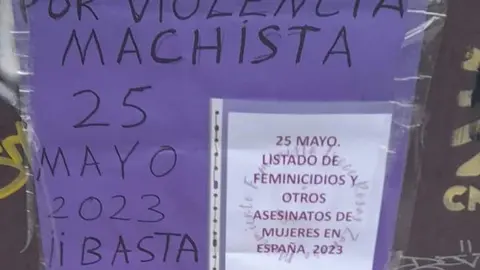 POR VIOLENCIA
MACHISTA
25
MAYO
2023
¡¡ BASTA
25 MAYO.
LISTADO DE
FEMINICIDIOS Y
OTROS
ASESINATOS DE
MUJERES EN
ESPAÑA, 2023